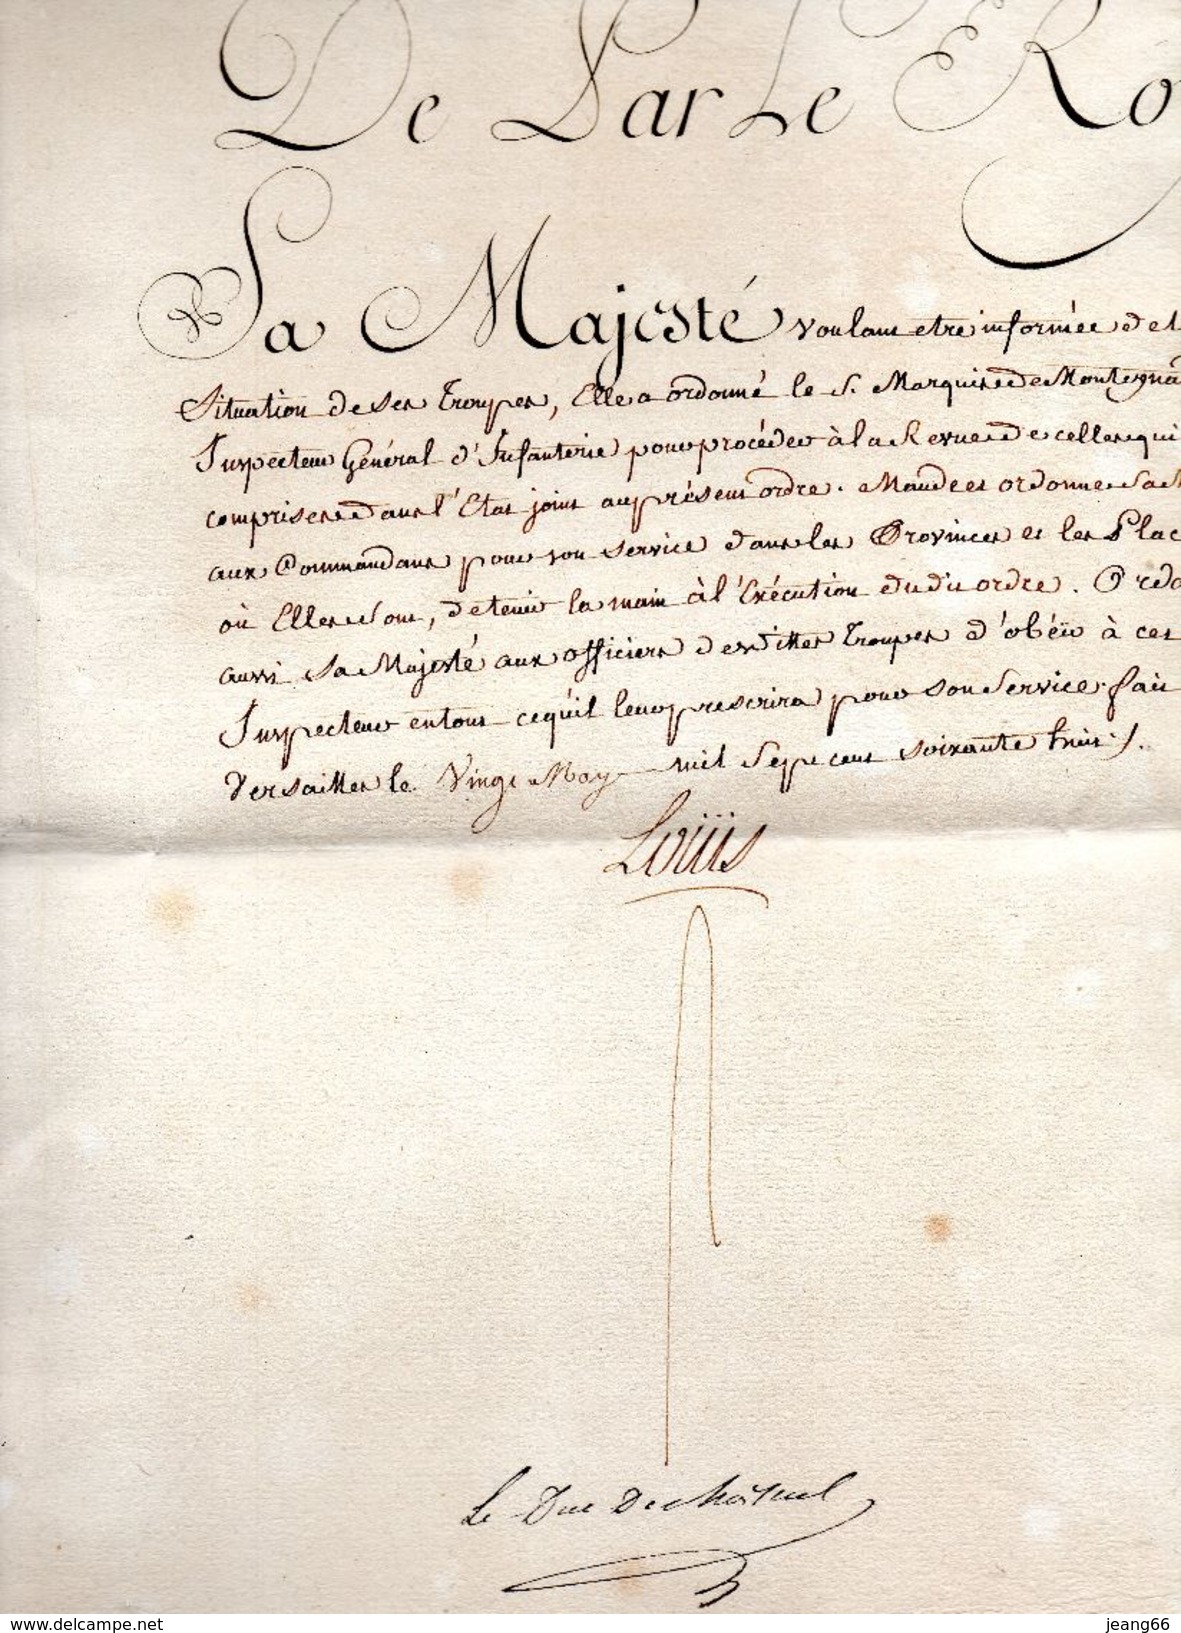 De Par Le Ro
Sa Majesté voulant etre informée de l
Situation de ses Troupes, Elle a ordonné le S. Marquis de Montegna
Inspecteur Général d'Infanterie pour procéder à la Revue de celles qui
comprises dans l'Etat joint au présent ordre. Mande et ordonne Sa
aux Commandans pour son service dans les Provinces et les Plac
où Elles sont, de tenir la main à l'Exécution dudit ordre. Ordo
aussi Sa Majesté aux officiers desdittes Troupes d'obéir à cet
Inspecteur en tout ce qu'il leur prescrira pour son Service. fait
Versailles le Vingt May mil Sept cent soixante trois ./.
Louis
Le Duc De choiseul
delcampe.net
jeang66